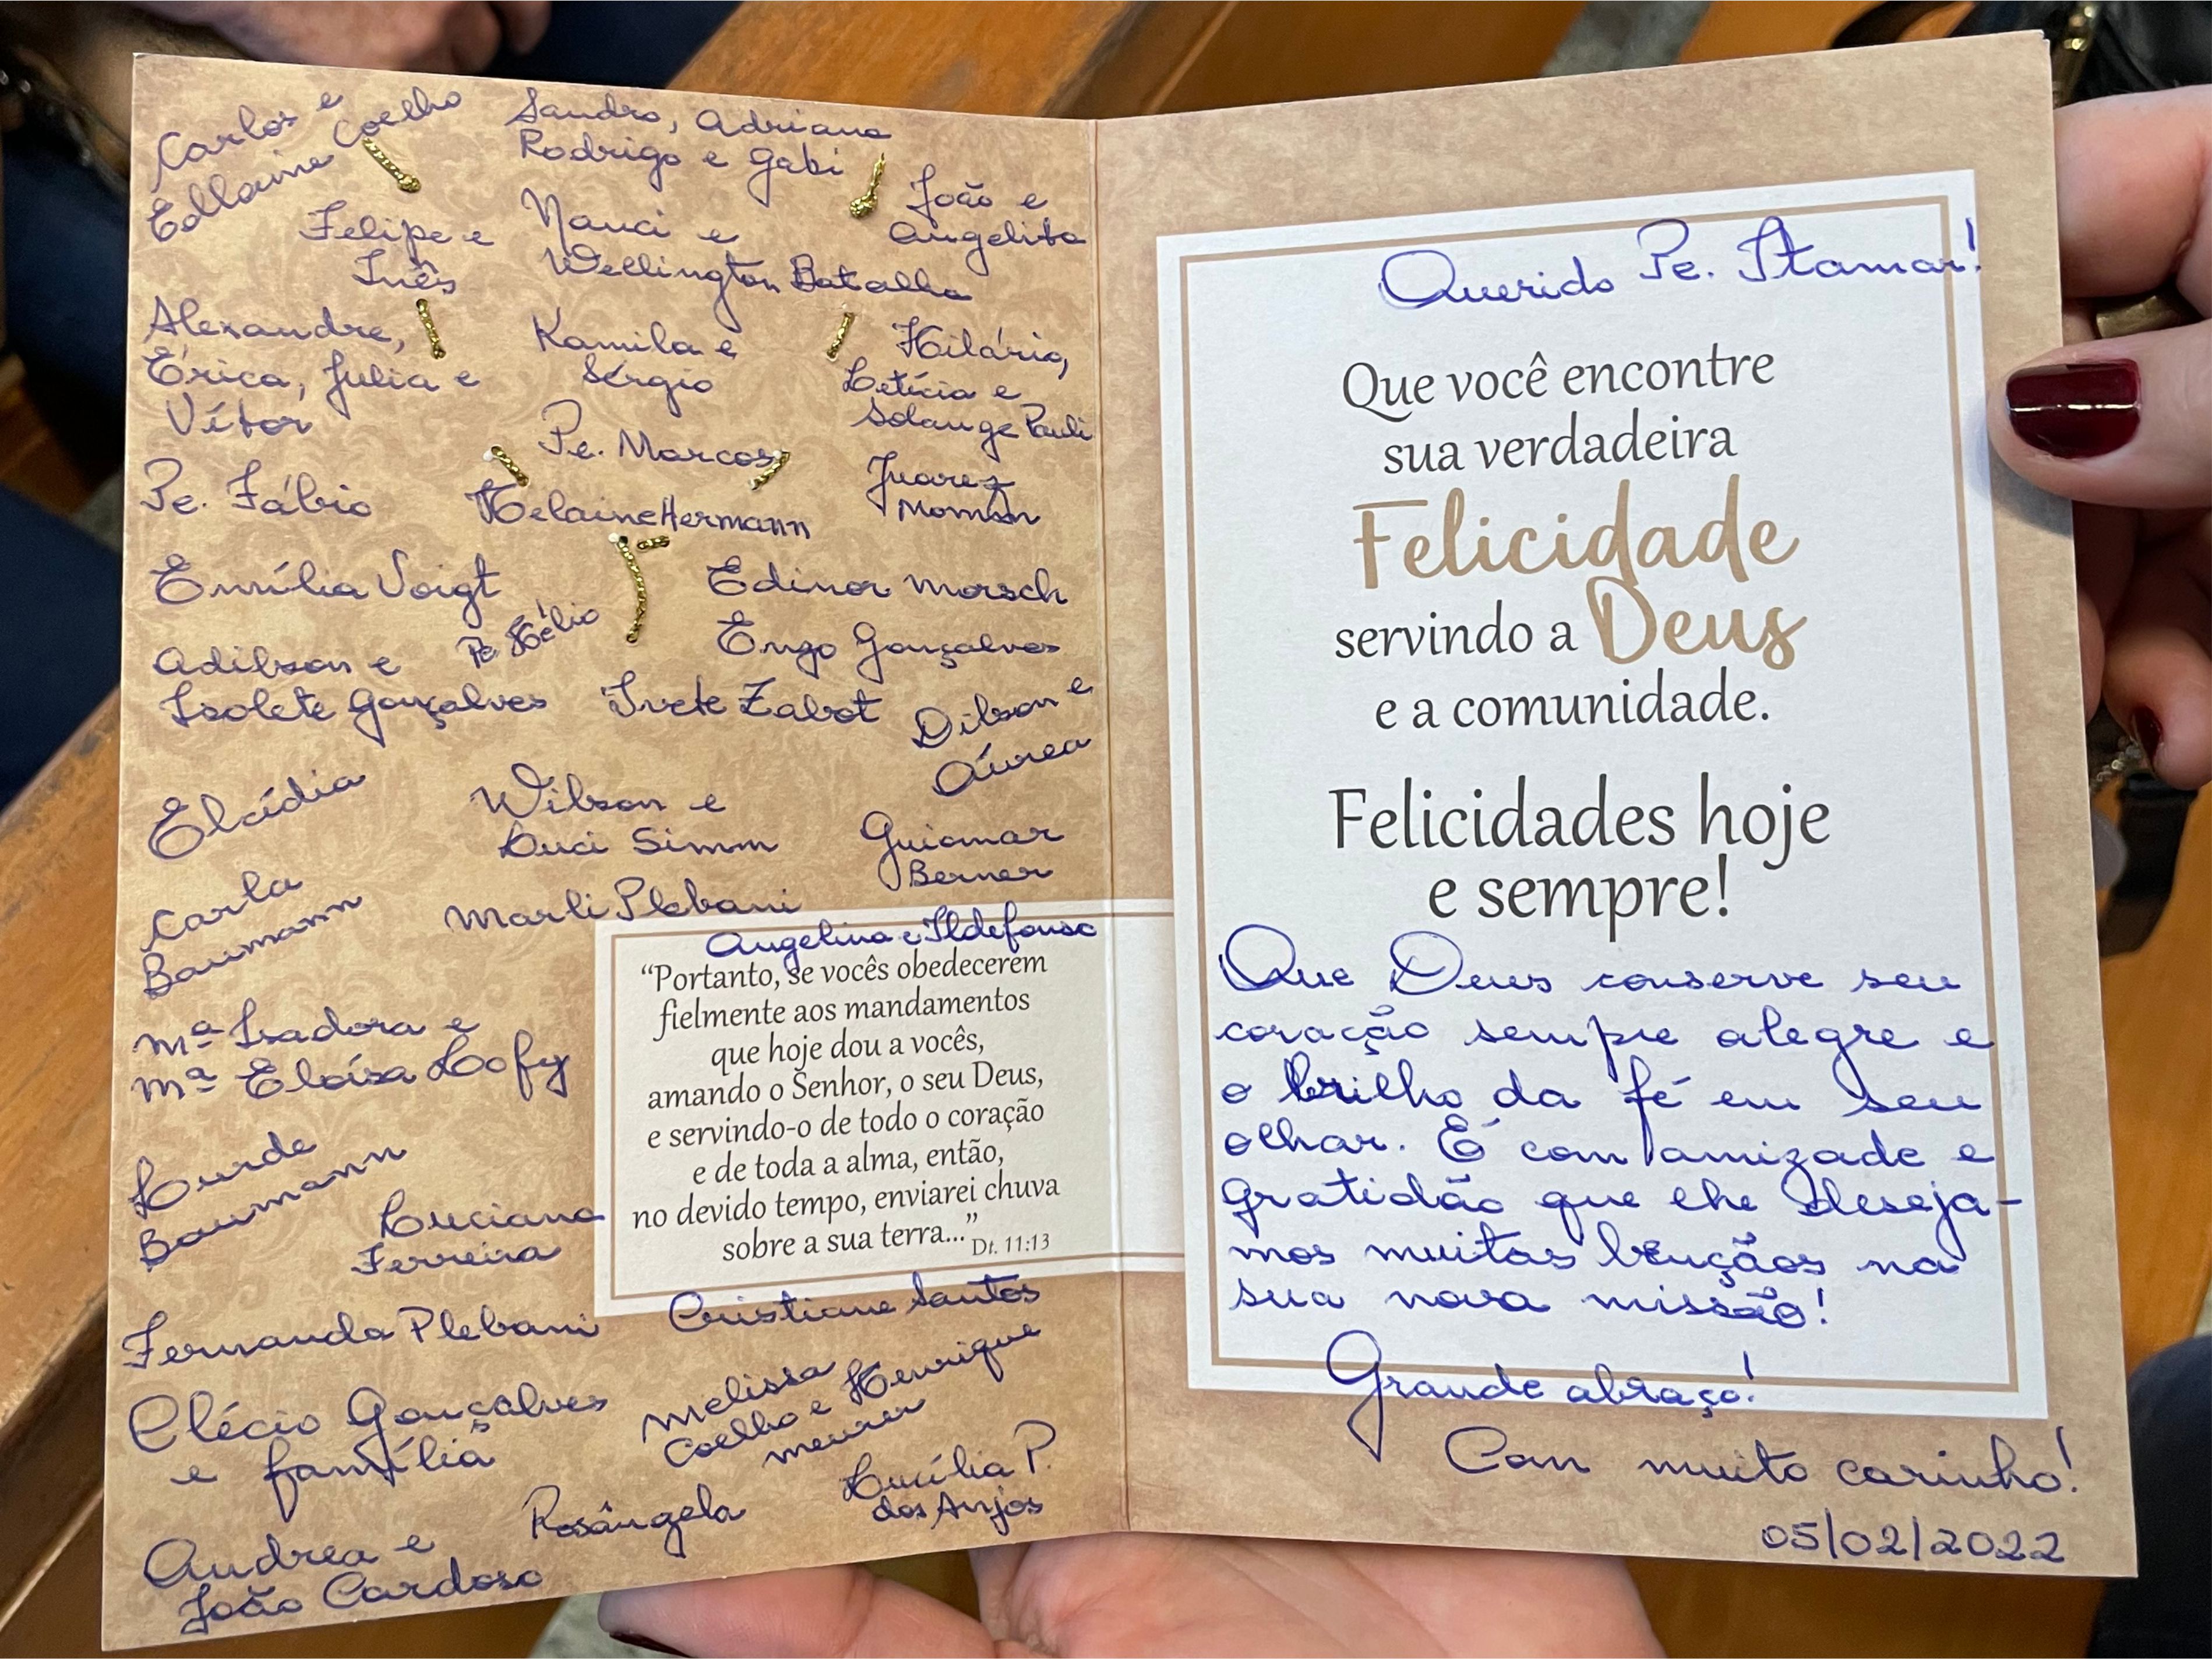 Carlos e
Edlaine Coelho
Sandro, Adriana
Rodrigo e Gabi
João e
Angelita
Felipe e
Inês
Nanci e
Wellington Batalha
Alexandre,
Érica, Julia e
Vítor
Kamila e
Sérgio
Hilário,
Letícia e
Solange Pauli
Pe. Marcos
Pe. Fábio
Helaine Hermann
Juarez
Momm
Emília Voigt
Pe Hélio
Edinor Morsch
Adilson e
Isolete Gonçalves
Engo Gonçalves
Ivete Zabot
Dilson e
Áurea
Elcídia
Wilson e
Luci Simm
Guiomar
Berner
Carla
Baumann
Marli Plebani
Angelina e Ildefonso
“Portanto, se vocês obedecerem
fielmente aos mandamentos
que hoje dou a vocês,
amando o Senhor, o seu Deus,
e servindo-o de todo o coração
e de toda a alma, então,
no devido tempo, enviarei chuva
sobre a sua terra...”
Dt. 11:13
Mª Isadora e
Mª Eloísa Lofy
Lurde
Baumann
Luciana
Ferreira
Fernanda Plebani
Cristiane Santos
Clécio Gonçalves
e família
Melissa
Coelho e Henrique
Meurer
Rosângela
Lucília P.
dos Anjos
Andrea e
João Cardoso
Querido Pe. Itamar!
Que você encontre
sua verdadeira
Felicidade
servindo a Deus
e a comunidade.
Felicidades hoje
e sempre!
Que Deus conserve seu
coração sempre alegre e
o brilho da fé em seu
olhar. É com amizade e
gratidão que lhe deseja-
mos muitas bênçãos na
sua nova missão!
Grande abraço!
Com muito carinho!
05/02/2022